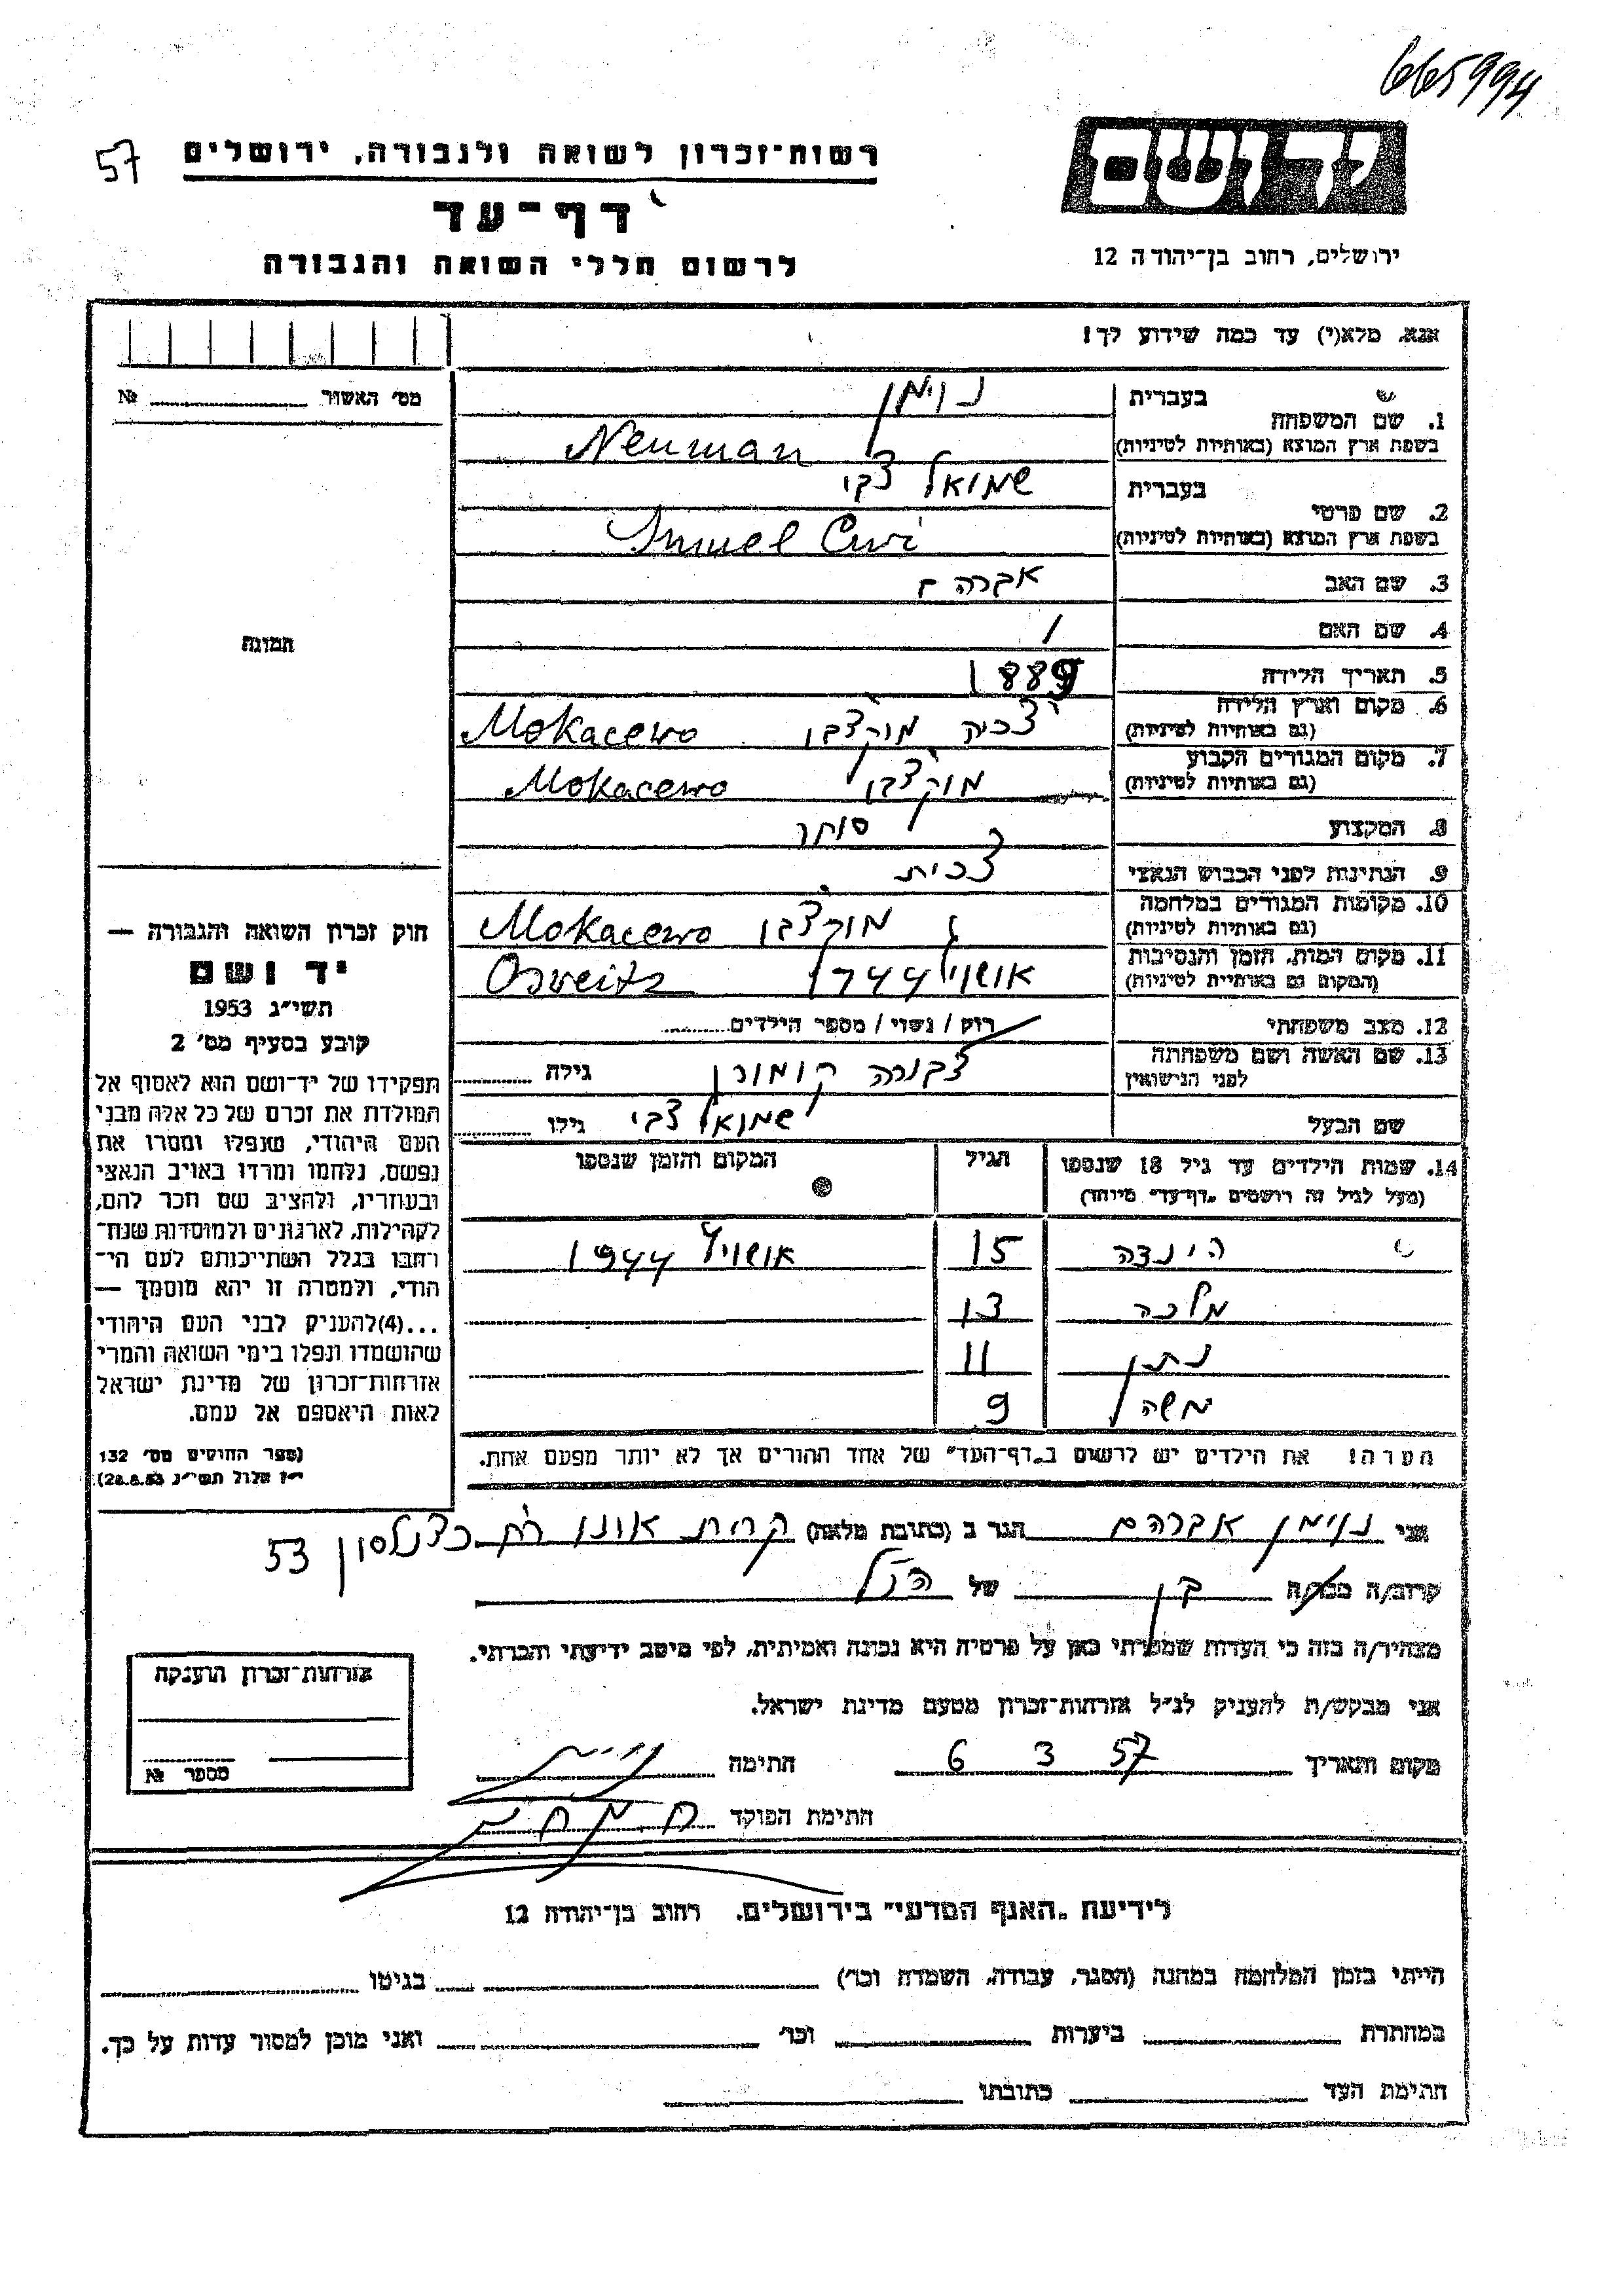 665994
57
רשות־זכרון לשואה ולגבורה, ירושלים
יד ושם
דף־עד
ירושלים, רחוב בן־יהודה 12
לרשום חללי השואה והגבורה
אנא, מלא(י) עד כמה שידוע לך!
מס' האשור № 
1. שם המשפחה
בעברית
נוימן
בשפת ארץ המוצא (באותיות לטיניות)
Neuman
2. שם פרטי
בעברית
שמואל צבי
בשפת ארץ המוצא (באותיות לטיניות)
Smuel Cwi
3. שם האב
אברהם
4. שם האם
/
5. תאריך הלידה
1889
6. מקום וארץ הלידה
(גם באותיות לטיניות)
צ'כיה מוקצ'בו Mokacewo
7. מקום המגורים הקבוע
(גם באותיות לטיניות)
מוקצ'בו Mokacewo
8. המקצוע
סוחר
9. הנתינות לפני הכבוש הנאצי
צ'כית
10. מקומות המגורים במלחמה
(גם באותיות לטיניות)
מוקצ'בו Mokacewo
11. מקום המות, הזמן והנסיבות
(המקום גם באותיות לטיניות)
אושויץ 1944 Osweits
12. מצב משפחתי
רוק / נשוי / מספר הילדים
13. שם האשה ושם משפחתה
לפני הנישואין
צפורה גילה
שם הבעל
שמואל צבי גילו
תמונה
חוק זכרון השואה והגבורה —
יד ושם
תשי״ג 1953
קובע בסעיף מס׳ 2
תפקידו של יד־ושם הוא לאסוף אל
המולדת את זכרם של כל אלה מבני
העם היהודי, שנפלו ומסרו את
נפשם, נלחמו ומרדו באויב הנאצי
ובעוזריו, ולהציב שם וזכר להם,
לקהילות, לארגונים ולמוסדות שנח־
רבו בגלל השתייכותם לעם הי־
הודי, ולמטרה זו יהא מוסמך —
...(4)להעניק לבני העם היהודי
שהושמדו ונפלו בימי השואה והמרי
אזרחות־זכרון של מדינת ישראל
לאות היאספם אל עמם.
(ספר החוקים מס׳ 132
י״ז אלול תשי״ג 28.8.53)
14. שמות הילדים עד גיל 18 שנספו
(מעל לגיל זה רושמים „דף־עד״ מיוחד)
הגיל
המקום והזמן שנספו
הינצה 15 אושויץ 1944
מלכה 13
נתן 11
משה 9
הערה! את הילדים יש לרשום ב„דף־העד״ של אחד ההורים אך לא יותר מפעם אחת.
אני נוימן אברהם הגר ב (כתובת מלאה) קרית אונו רח' כצנלסון 53
קרוב/ה מכר/ה בן של הנ"ל
מצהיר/ה בזה כי העדות שמסרתי כאן על פרטיה היא נכונה ואמיתית, לפי מיטב ידיעתי והכרתי.
אני מבקש/ת להעניק לנ״ל אזרחות־זכרון מטעם מדינת ישראל.
מקום ותאריך 6 3 57 חתימה
חתימת הפוקד
אזרחות־זכרון הוענקה
מספר №
לידיעת „האגף המדעי״ בירושלים. רחוב בן־יהודה 12
הייתי בזמן המלחמה במחנה (הסגר, עבודה, השמדה וכו׳) בגיטו
במחתרת ביערות וכו׳ ואני מוכן למסור עדות על כך.
חתימת העד כתובתו